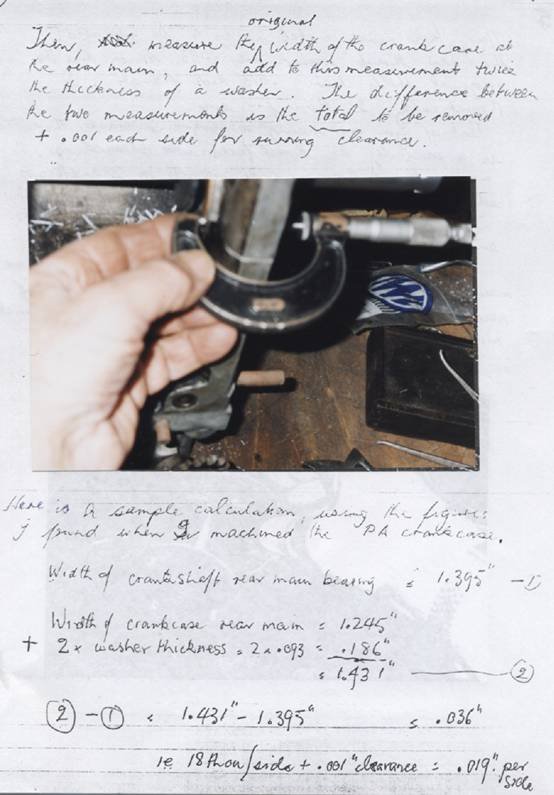 original
Then, measure the width of the crank case at
the rear main, and add to this measurement twice
the thickness of a washer. The difference between
the two measurements is the total to be removed
+ .001 each side for running clearance.
Here is a sample calculation, using the figures
I found when I machined the PA crankcase.
Width of crankshaft rear main bearing = 1.395" - 1
Width of crankcase rear main = 1.245"
+ 2 x washer thickness = 2 x .093 = .186"
= 1.431" ② 
② - ① = 1.431" - 1.395" = .036"
ie 18 thou/side + .001" clearance = .019" per
side